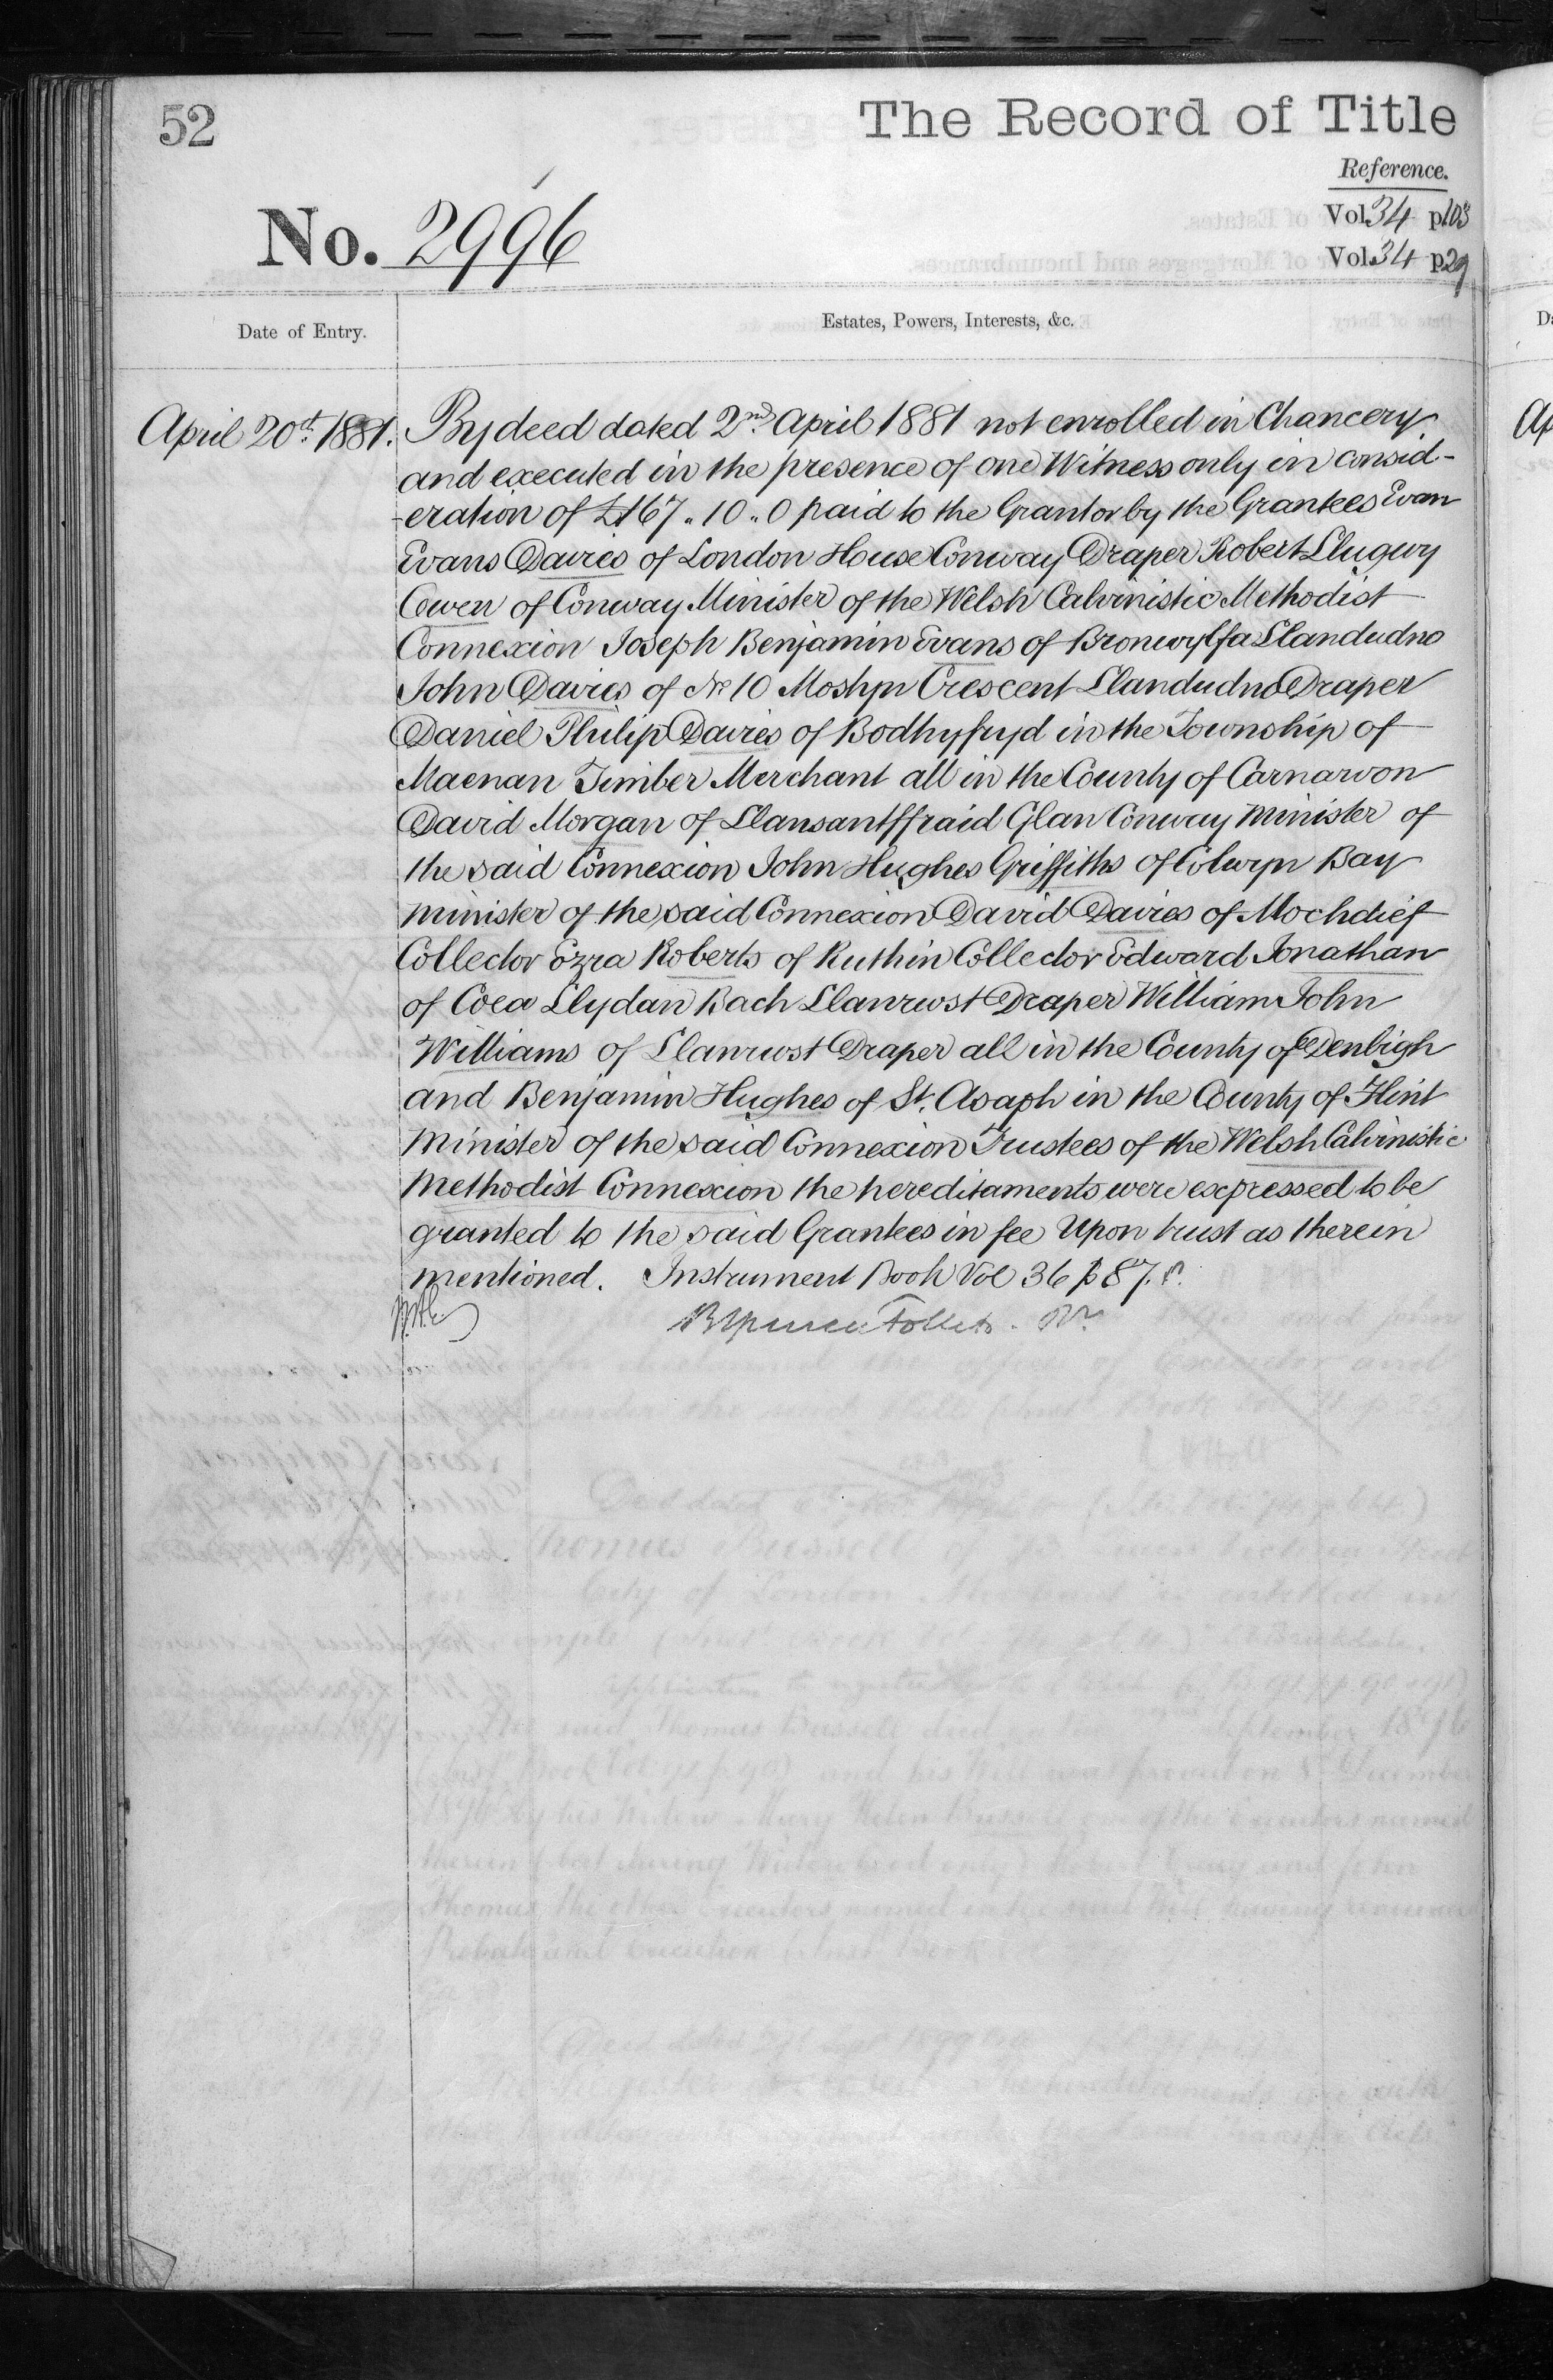 52
The Record of Title
Reference.
No. 2996
Vol. 34 p. 103
Vol. 34 p. 29
Date of Entry.
Estates, Powers, Interests, &c.
April 20th 1881. By deed dated 2nd April 1881 not enrolled in Chancery
and executed in the presence of one Witness only in consid-
-eration of £167.. 10.. 0 paid to the Grantor by the Grantees Evan
Evans Davies of London House Conway Draper Robert Llugwy
Owen of Conway Minister of the Welsh Calvinistic Methodist
Connexion Joseph Benjamin Evans of Bronwylfa Llandudno
John Davies of No 10 Mostyn Crescent Llandudno Draper
Daniel Philip Davies of Bodhyfryd in the Township of
Maenan Timber Merchant all in the County of Carnarvon
David Morgan of Llansantffraid Glan Conway Minister of
the said Connexion John Hughes Griffiths of Colwyn Bay
Minister of the said Connexion David Davies of Mochdief
Collector Ezra Roberts of Ruthin Collector Edward Jonathan
of Coed Llydan Bach Llanrwst Draper William John
Williams of Llanrwst Draper all in the County of Denbigh
and Benjamin Hughes of St. Asaph in the County of Flint
Minister of the said Connexion Trustees of the Welsh Calvinistic
Methodist Connexion the hereditaments were expressed to be
granted to the said Grantees in fee Upon trust as therein
mentioned. Instrument Book Vol 36 p 87.